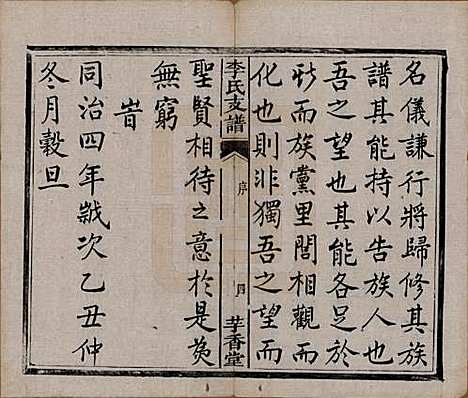 名儀謙行將歸修其族
譜其能持以告族人也
吾之望也其能各足於
斯而族黨里閭相觀而
化也則非獨吾之望而
李氏支譜
序
四
莘香堂
聖賢相待之意於是為
無窮
旹
同治四年歲次乙丑仲
冬月穀旦